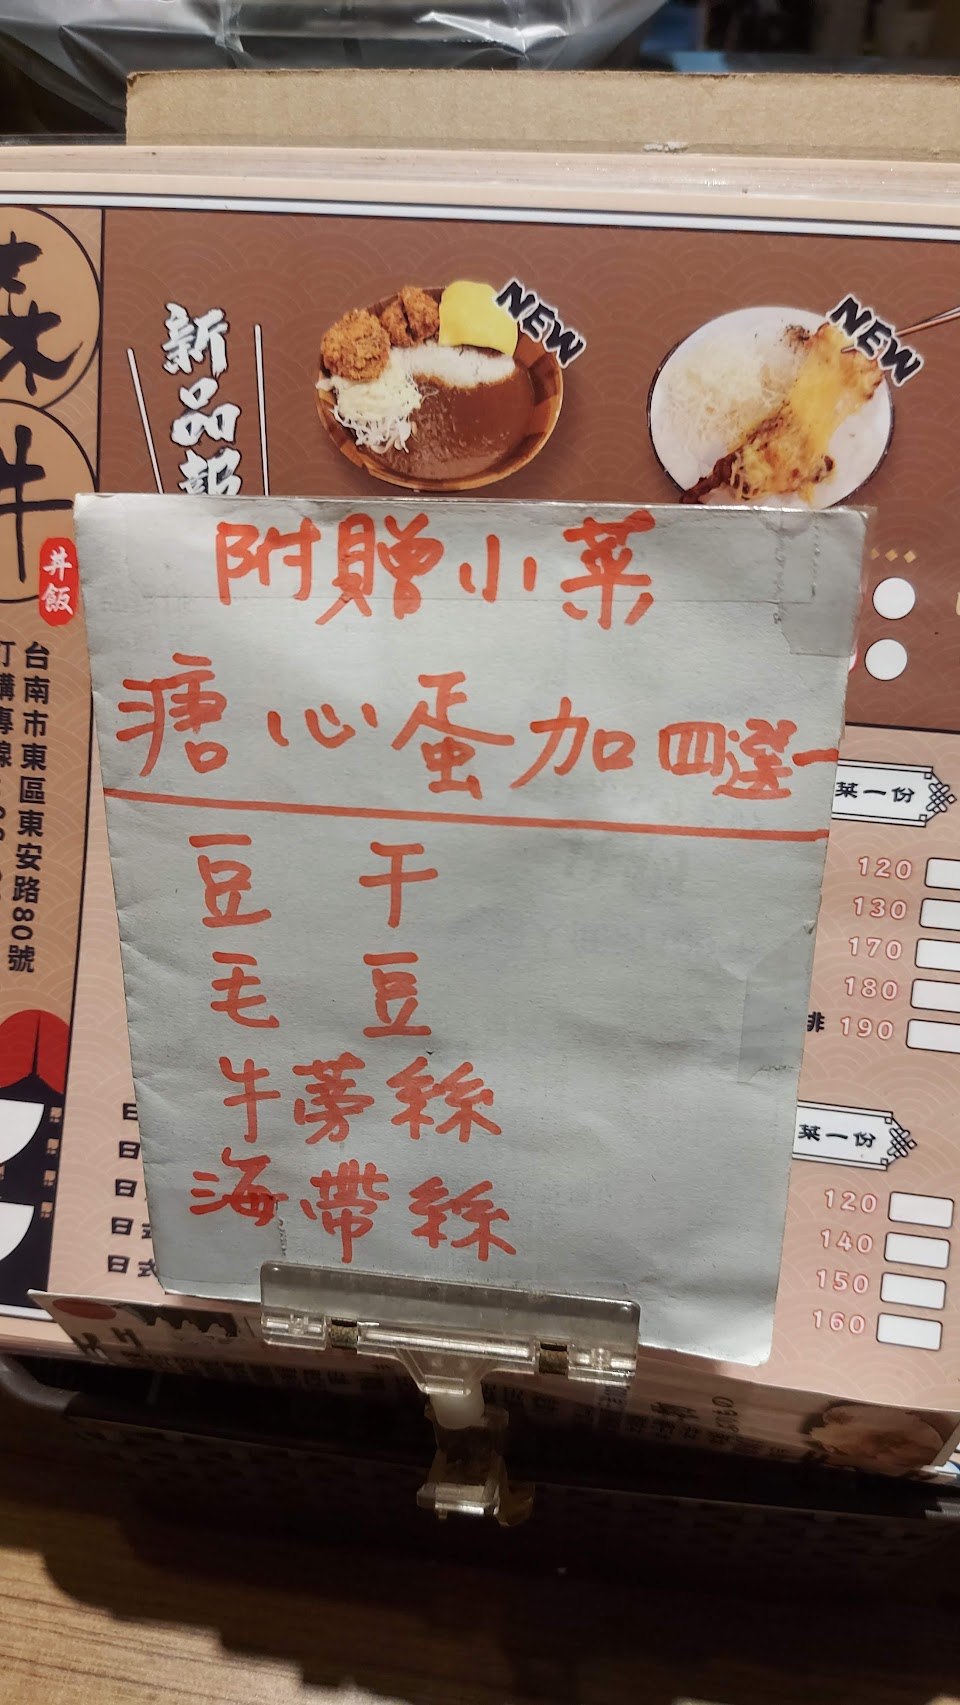 新品報
NEW
NEW
丼飯
台南市東區東安路80號
附贈小菜
溏心蛋加四選一
豆干
毛豆
牛蒡絲
海帶絲
菜一份
120
130
170
180
排 190
菜一份
120
140
150
160